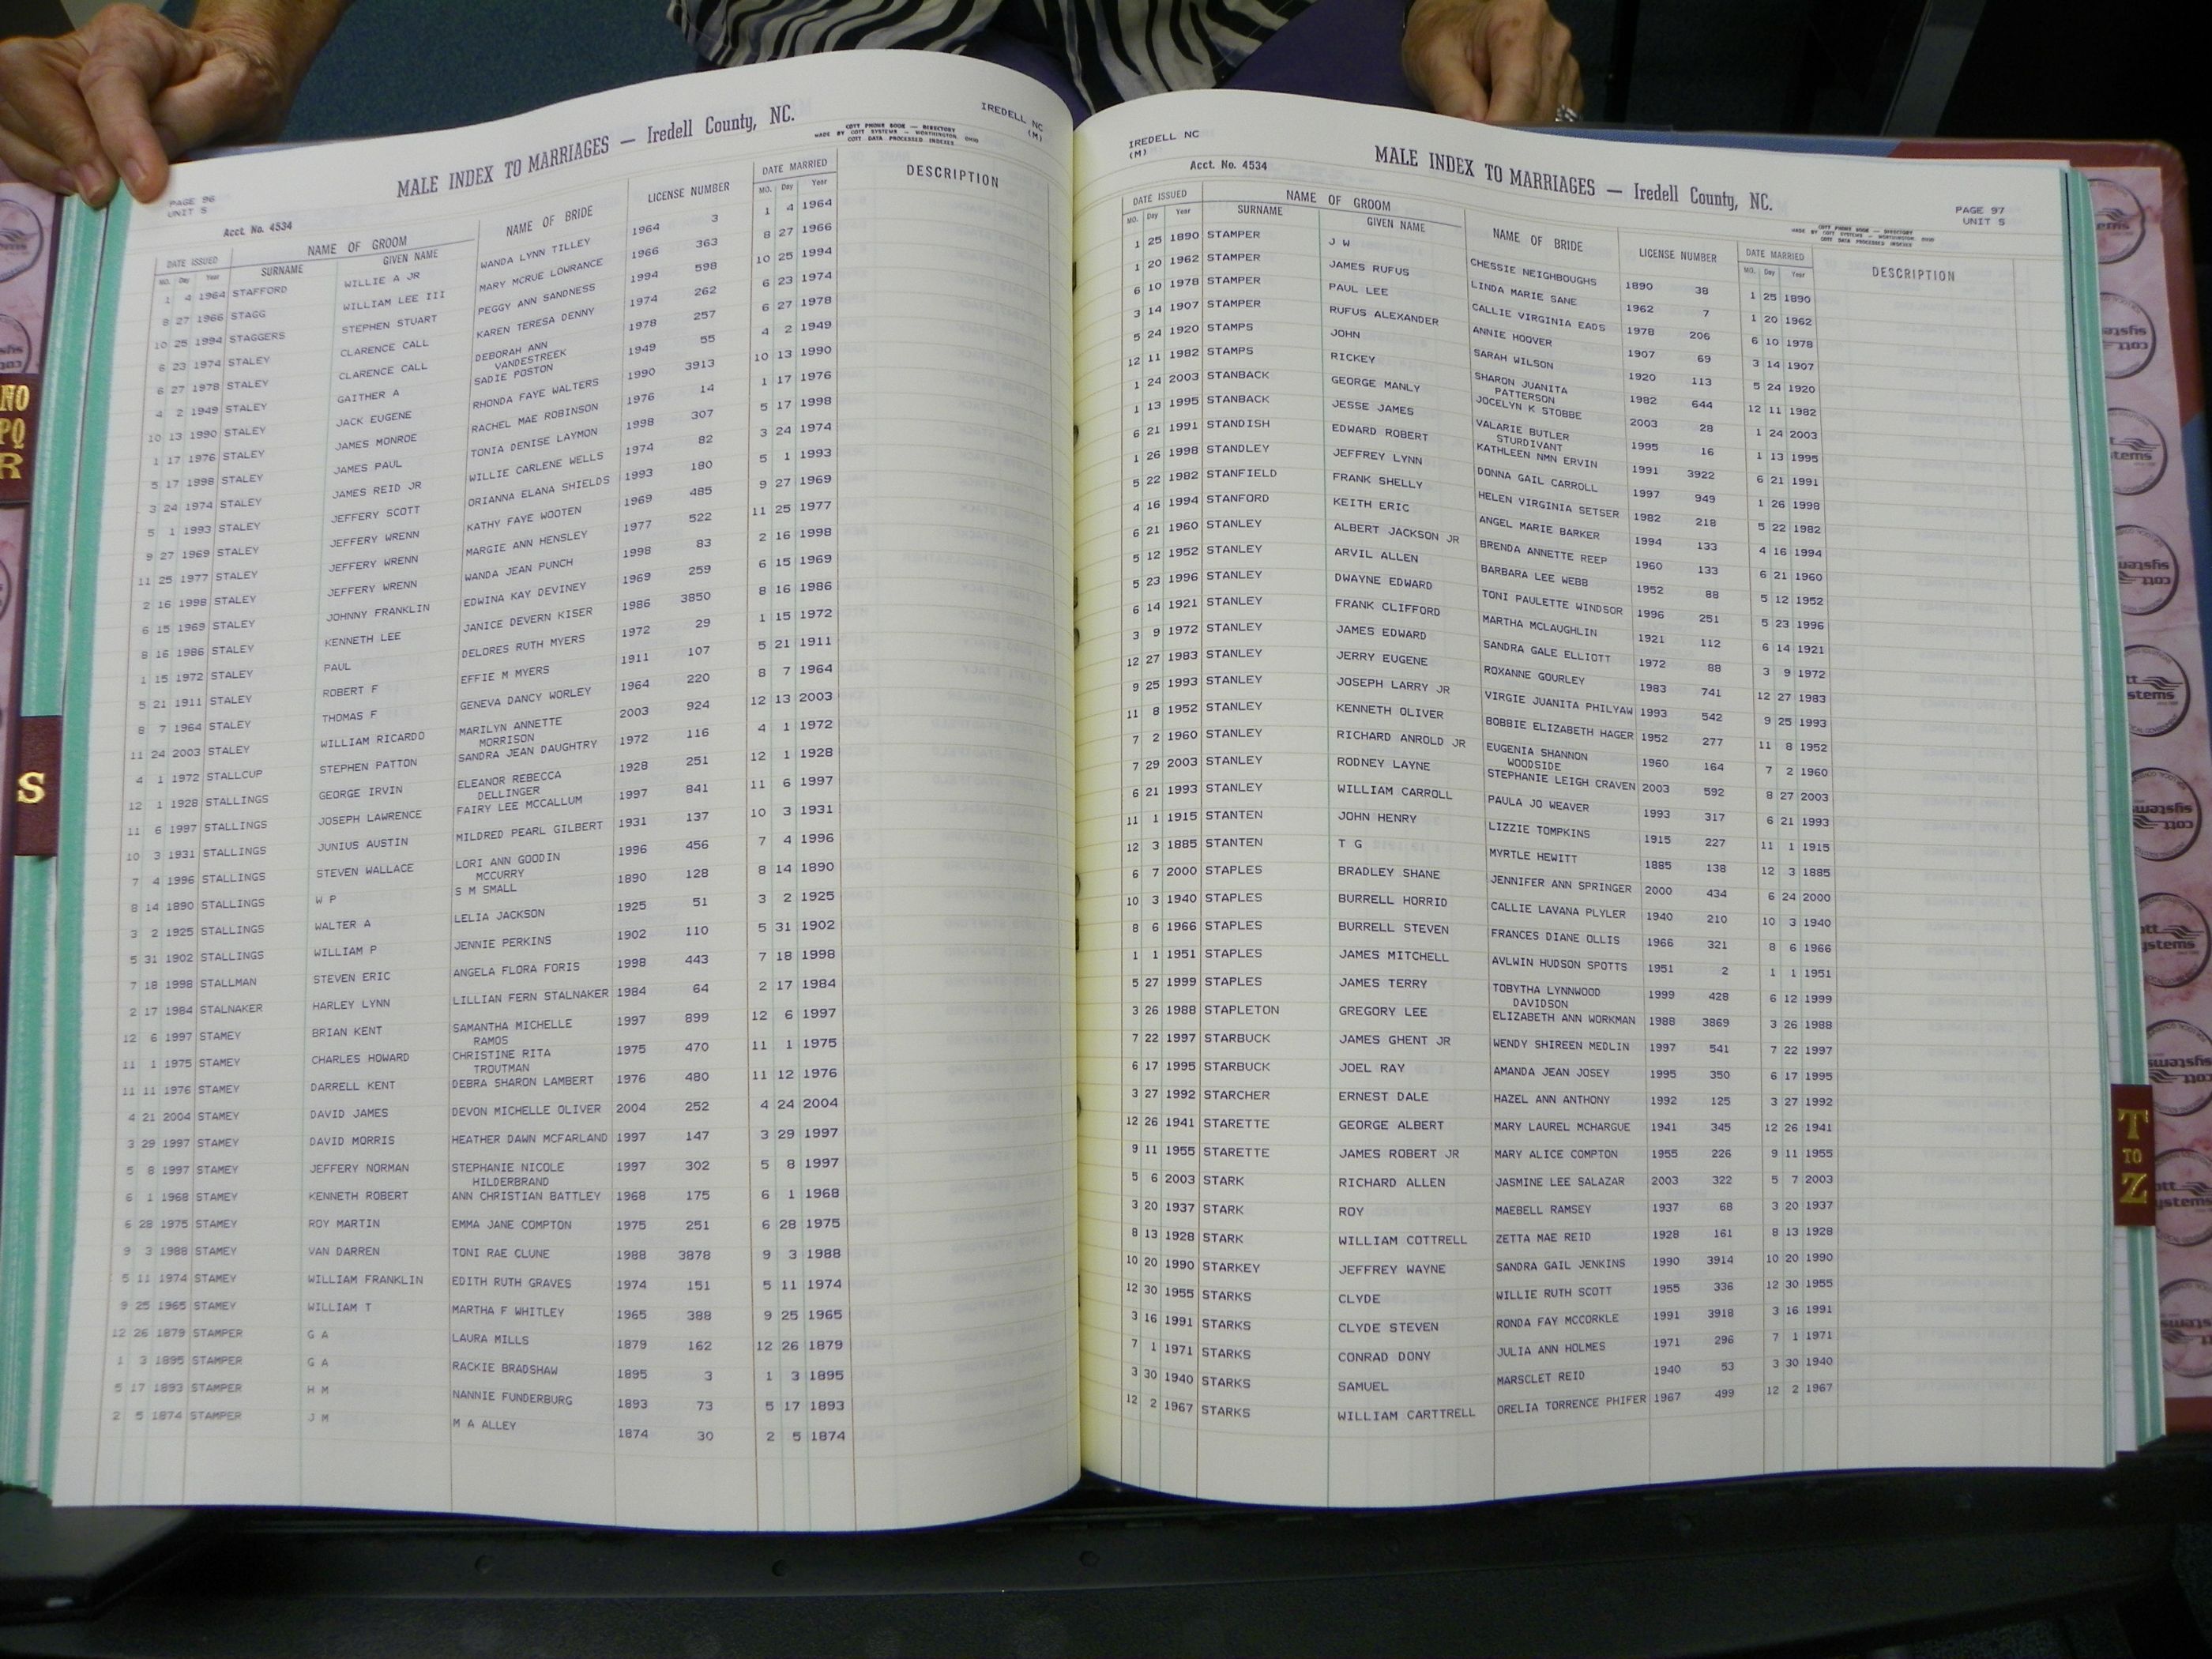 IREDELL NC
(M)
MALE INDEX TO MARRIAGES — Iredell County, NC.
COTT PHONE BOOK — DIRECTORY
MADE BY COTT SYSTEMS — WORTHINGTON OHIO
COTT DATA PROCESSED INDEXES
PAGE 96
UNIT S
Acct. No. 4534
DATE ISSUED NAME OF GROOM NAME OF BRIDE LICENSE NUMBER DATE MARRIED DESCRIPTION
MO. Day Year SURNAME GIVEN NAME MO. Day Year
1 4 1964 STAFFORD WILLIE A JR WANDA LYNN TILLEY 1964 3 1 4 1964
8 27 1966 STAGG WILLIAM LEE III MARY MCRUE LOWRANCE 1966 363 8 27 1966
10 25 1994 STAGGERS STEPHEN STUART PEGGY ANN SANDNESS 1994 598 10 25 1994
6 23 1974 STALEY CLARENCE CALL KAREN TERESA DENNY 1974 262 6 23 1974
6 27 1978 STALEY CLARENCE CALL DEBORAH ANN 1978 257 6 27 1978
VANDESTREEK
4 2 1949 STALEY GAITHER A SADIE POSTON 1949 55 4 2 1949
10 13 1990 STALEY JACK EUGENE RHONDA FAYE WALTERS 1990 3913 10 13 1990
1 17 1976 STALEY JAMES MONROE RACHEL MAE ROBINSON 1976 14 1 17 1976
5 17 1998 STALEY JAMES PAUL TONIA DENISE LAYMON 1998 307 5 17 1998
3 24 1974 STALEY JAMES REID JR WILLIE CARLENE WELLS 1974 82 3 24 1974
5 1 1993 STALEY JEFFERY SCOTT ORIANNA ELANA SHIELDS 1993 180 5 1 1993
9 27 1969 STALEY JEFFERY WRENN KATHY FAYE WOOTEN 1969 485 9 27 1969
11 25 1977 STALEY JEFFERY WRENN MARGIE ANN HENSLEY 1977 522 11 25 1977
2 16 1998 STALEY JEFFERY WRENN WANDA JEAN PUNCH 1998 83 2 16 1998
6 15 1969 STALEY JOHNNY FRANKLIN EDWINA KAY DEVINEY 1969 259 6 15 1969
8 16 1986 STALEY KENNETH LEE JANICE DEVERN KISER 1986 3850 8 16 1986
1 15 1972 STALEY PAUL DELORES RUTH MYERS 1972 29 1 15 1972
5 21 1911 STALEY ROBERT F EFFIE M MYERS 1911 107 5 21 1911
8 7 1964 STALEY THOMAS F GENEVA DANCY WORLEY 1964 220 8 7 1964
11 24 2003 STALEY WILLIAM RICARDO MARILYN ANNETTE 2003 924 12 13 2003
MORRISON
4 1 1972 STALLCUP STEPHEN PATTON SANDRA JEAN DAUGHTRY 1972 116 4 1 1972
12 1 1928 STALLINGS GEORGE IRVIN ELEANOR REBECCA 1928 251 12 1 1928
DELLINGER
11 6 1997 STALLINGS JOSEPH LAWRENCE FAIRY LEE MCCALLUM 1997 841 11 6 1997
10 3 1931 STALLINGS JUNIUS AUSTIN MILDRED PEARL GILBERT 1931 137 10 3 1931
7 4 1996 STALLINGS STEVEN WALLACE LORI ANN GOODIN 1996 456 7 4 1996
MCCURRY
8 14 1890 STALLINGS W P S M SMALL 1890 128 8 14 1890
3 2 1925 STALLINGS WALTER A LELIA JACKSON 1925 51 3 2 1925
5 31 1902 STALLINGS WILLIAM P JENNIE PERKINS 1902 110 5 31 1902
7 18 1998 STALLMAN STEVEN ERIC ANGELA FLORA FORIS 1998 443 7 18 1998
2 17 1984 STALNAKER HARLEY LYNN LILLIAN FERN STALNAKER 1984 64 2 17 1984
12 6 1997 STAMEY BRIAN KENT SAMANTHA MICHELLE 1997 899 12 6 1997
RAMOS
11 1 1975 STAMEY CHARLES HOWARD CHRISTINE RITA 1975 470 11 1 1975
TROUTMAN
11 11 1976 STAMEY DARRELL KENT DEBRA SHARON LAMBERT 1976 480 11 12 1976
4 21 2004 STAMEY DAVID JAMES DEVON MICHELLE OLIVER 2004 252 4 24 2004
3 29 1997 STAMEY DAVID MORRIS HEATHER DAWN MCFARLAND 1997 147 3 29 1997
5 8 1997 STAMEY JEFFERY NORMAN STEPHANIE NICOLE 1997 302 5 8 1997
HILDERBRAND
6 1 1968 STAMEY KENNETH ROBERT ANN CHRISTIAN BATTLEY 1968 175 6 1 1968
6 28 1975 STAMEY ROY MARTIN EMMA JANE COMPTON 1975 251 6 28 1975
9 3 1988 STAMEY VAN DARREN TONI RAE CLUNE 1988 3878 9 3 1988
5 11 1974 STAMEY WILLIAM FRANKLIN EDITH RUTH GRAVES 1974 151 5 11 1974
9 25 1965 STAMEY WILLIAM T MARTHA F WHITLEY 1965 388 9 25 1965
12 26 1879 STAMPER G A LAURA MILLS 1879 162 12 26 1879
1 3 1895 STAMPER G A RACKIE BRADSHAW 1895 3 1 3 1895
5 17 1893 STAMPER H M NANNIE FUNDERBURG 1893 73 5 17 1893
2 5 1874 STAMPER J M M A ALLEY 1874 30 2 5 1874
IREDELL NC
(M)
Acct. No. 4534
MALE INDEX TO MARRIAGES — Iredell County, NC.
PAGE 97
UNIT S
COTT PHONE BOOK — DIRECTORY
MADE BY COTT SYSTEMS — WORTHINGTON OHIO
COTT DATA PROCESSED INDEXES
DATE ISSUED NAME OF GROOM NAME OF BRIDE LICENSE NUMBER DATE MARRIED DESCRIPTION
MO. Day Year SURNAME GIVEN NAME MO. Day Year
1 25 1890 STAMPER J W CHESSIE NEIGHBOUGHS 1890 38 1 25 1890
1 20 1962 STAMPER JAMES RUFUS LINDA MARIE SANE 1962 7 1 20 1962
6 10 1978 STAMPER PAUL LEE CALLIE VIRGINIA EADS 1978 206 6 10 1978
3 14 1907 STAMPER RUFUS ALEXANDER ANNIE HOOVER 1907 69 3 14 1907
5 24 1920 STAMPS JOHN SARAH WILSON 1920 113 5 24 1920
12 11 1982 STAMPS RICKEY SHARON JUANITA 1982 644 12 11 1982
PATTERSON
1 24 2003 STANBACK GEORGE MANLY JOCELYN K STOBBE 2003 28 1 24 2003
1 13 1995 STANBACK JESSE JAMES VALARIE BUTLER 1995 16 1 13 1995
STURDIVANT
6 21 1991 STANDISH EDWARD ROBERT KATHLEEN NMN ERVIN 1991 3922 6 21 1991
1 26 1998 STANDLEY JEFFREY LYNN DONNA GAIL CARROLL 1997 949 1 26 1998
5 22 1982 STANFIELD FRANK SHELLY HELEN VIRGINIA SETSER 1982 218 5 22 1982
4 16 1994 STANFORD KEITH ERIC ANGEL MARIE BARKER 1994 133 4 16 1994
6 21 1960 STANLEY ALBERT JACKSON JR BRENDA ANNETTE REEP 1960 133 6 21 1960
5 12 1952 STANLEY ARVIL ALLEN BARBARA LEE WEBB 1952 88 5 12 1952
5 23 1996 STANLEY DWAYNE EDWARD TONI PAULETTE WINDSOR 1996 251 5 23 1996
6 14 1921 STANLEY FRANK CLIFFORD MARTHA MCLAUGHLIN 1921 112 6 14 1921
3 9 1972 STANLEY JAMES EDWARD SANDRA GALE ELLIOTT 1972 88 3 9 1972
12 27 1983 STANLEY JERRY EUGENE ROXANNE GOURLEY 1983 741 12 27 1983
9 25 1993 STANLEY JOSEPH LARRY JR VIRGIE JUANITA PHILYAW 1993 542 9 25 1993
11 8 1952 STANLEY KENNETH OLIVER BOBBIE ELIZABETH HAGER 1952 277 11 8 1952
7 2 1960 STANLEY RICHARD ANROLD JR EUGENIA SHANNON 1960 164 7 2 1960
WOODSIDE
7 29 2003 STANLEY RODNEY LAYNE STEPHANIE LEIGH CRAVEN 2003 592 8 27 2003
6 21 1993 STANLEY WILLIAM CARROLL PAULA JO WEAVER 1993 317 6 21 1993
11 1 1915 STANTEN JOHN HENRY LIZZIE TOMPKINS 1915 227 11 1 1915
12 3 1885 STANTEN T G MYRTLE HEWITT 1885 138 12 3 1885
6 7 2000 STAPLES BRADLEY SHANE JENNIFER ANN SPRINGER 2000 434 6 24 2000
10 3 1940 STAPLES BURRELL HORRID CALLIE LAVANA PLYLER 1940 210 10 3 1940
8 6 1966 STAPLES BURRELL STEVEN FRANCES DIANE OLLIS 1966 321 8 6 1966
1 1 1951 STAPLES JAMES MITCHELL AVLWIN HUDSON SPOTTS 1951 2 1 1 1951
5 27 1999 STAPLES JAMES TERRY TOBYTHA LYNNWOOD 1999 428 6 12 1999
DAVIDSON
3 26 1988 STAPLETON GREGORY LEE ELIZABETH ANN WORKMAN 1988 3869 3 26 1988
7 22 1997 STARBUCK JAMES GHENT JR WENDY SHIREEN MEDLIN 1997 541 7 22 1997
6 17 1995 STARBUCK JOEL RAY AMANDA JEAN JOSEY 1995 350 6 17 1995
3 27 1992 STARCHER ERNEST DALE HAZEL ANN ANTHONY 1992 125 3 27 1992
12 26 1941 STARETTE GEORGE ALBERT MARY LAUREL MCHARGUE 1941 345 12 26 1941
9 11 1955 STARETTE JAMES ROBERT JR MARY ALICE COMPTON 1955 226 9 11 1955
5 6 2003 STARK RICHARD ALLEN JASMINE LEE SALAZAR 2003 322 5 7 2003
3 20 1937 STARK ROY MAEBELL RAMSEY 1937 68 3 20 1937
8 13 1928 STARK WILLIAM COTTRELL ZETTA MAE REID 1928 161 8 13 1928
10 20 1990 STARKEY JEFFREY WAYNE SANDRA GAIL JENKINS 1990 3914 10 20 1990
12 30 1955 STARKS CLYDE WILLIE RUTH SCOTT 1955 336 12 30 1955
3 16 1991 STARKS CLYDE STEVEN RONDA FAY MCCORKLE 1991 3918 3 16 1991
7 1 1971 STARKS CONRAD DONY JULIA ANN HOLMES 1971 296 7 1 1971
3 30 1940 STARKS SAMUEL MARSCLET REID 1940 53 3 30 1940
12 2 1967 STARKS WILLIAM CARTTRELL ORELIA TORRENCE PHIFER 1967 499 12 2 1967
NO
PQ
R
S
T
TO
Z